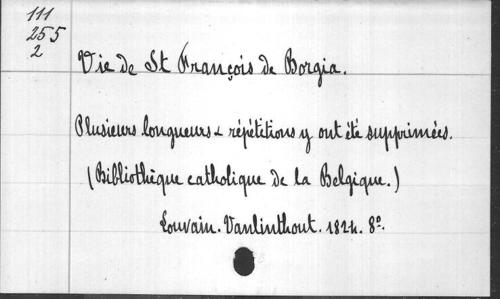 111
255
2
Vie de St François de Borgia.
Plusieurs longueurs & répétitions y ont été supprimées.
(Bibliothèque catholique de la Belgique.)
Louvain. Vanlinthout. 1824. 8º.